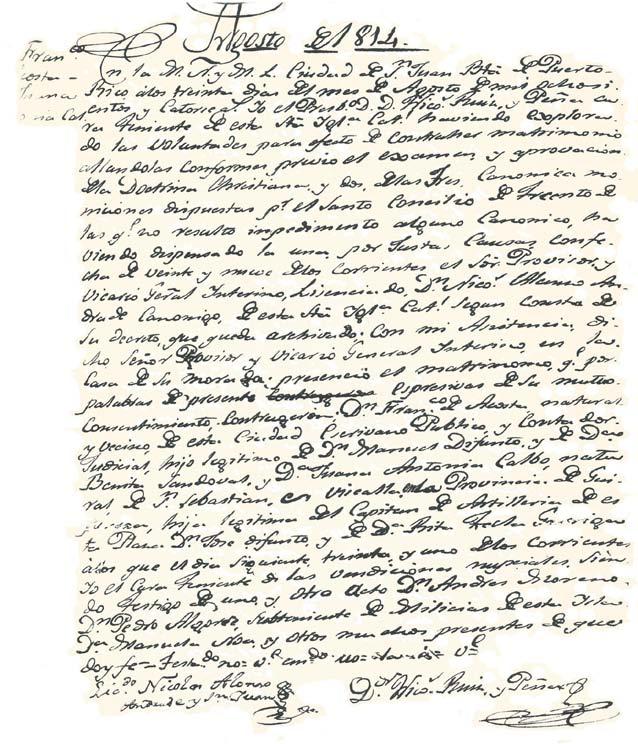 Agosto de 1814.
Fran.co
Acosta
Juana
onia Cal
n, la M. N. y M. L. Ciudad de S.n Juan Bta de Puerto-
Rico a los treinta dias del mes de Agosto de mil ochosi
entos, y Catorce: Yo el Presb.o D. D. Nico.s Ruiz, y Peña cu
ra teniente de esta Sta Igl.a Cat.l haviendo explora
do las voluntades para efecto de contraher matrimonio
allandolas conformes previo el examen, y aprovacion
de la Doctrina Christiana, y dos, de las tres, Canonica mo
niciones dispuestas p.r el Santo Concilio de Trento de
las q.e no resulto impedimento alguno Canonico, ha
viendo dispensado la una, por justas Causas, confe
cha de veinte y nueve de los corrientes el Sor. Provisor, y
Vicario Gral Interino, Licenciado, D.n Nico.s Alonso An
drade Canonigo, de esta Sta Igl.a Cat.l segun consta de
su decreto, que queda archivado: Con mi Asistencia, di
cho Señor Provisor y Vicario General Interino, en la
Casa de su morada: presencio el matrimonio, q.e por
palabras de presente espresivas de su mutuo
Consentimiento, contrageron, D.n Fran.co de Acosta natural
y vecino, de esta Ciudad Escrivano Publico, y Contador
Judicial, hijo legitimo de D.n Manuel Difunto, y de D.a
Benita Sandoval, y D.a Juana Antonia Calbo, natu
ral de S.n Sebastian, en Vizcalla, Provincia de Gui
puzcoa, hija legitima del Capitan de Artilleria de es
ta Plaza D.n Jose difunto, y de D.a Rita
a los que el dia siguiente treinta y uno de los corrientes
Yo el Cura Teniente di las vendiciones nupciales, sien
do testigo de uno, y otro Acto D.n Andres Moreno
D.n Pedro Subteniente de Milicias de esta Isla
D.a Manuela y otros muchos presentes de que
doy fe =
Lic.do Nicolas Alonso
Andrade y
D.or Nico.s Ruiz, y Peña